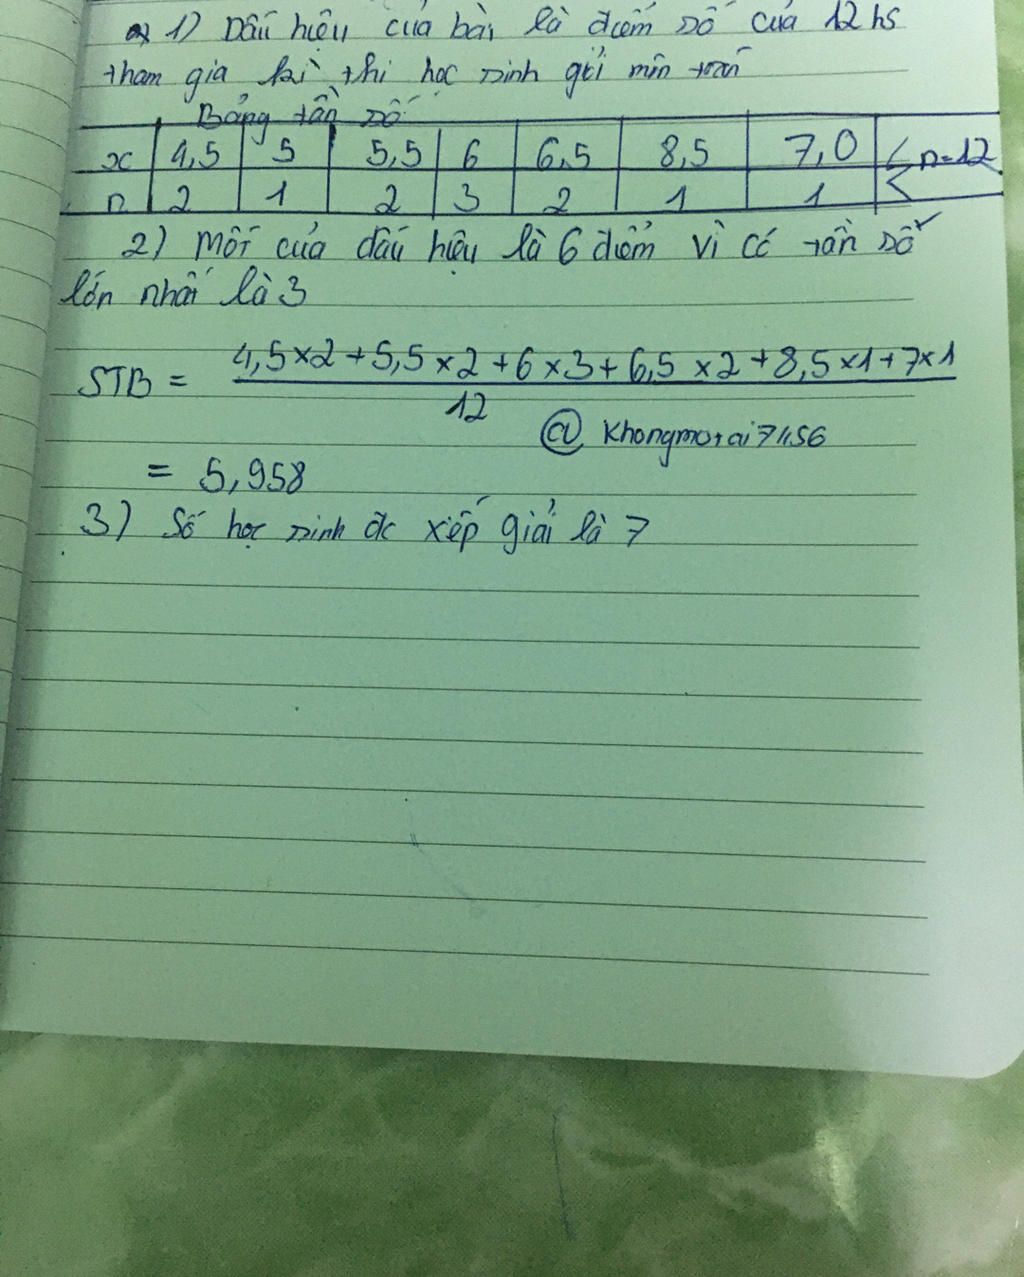 1) Dấu hiệu của bài là điểm số của 12 hs
tham gia kì thi học sinh giỏi môn toán
Bảng tần số
x 4,5 5 5,5 6 6,5 8,5 7,0 n=12
n 2 1 2 3 2 1 1
2) Mốt của dấu hiệu là 6 điểm vì có tần số
lớn nhất là 3
STB = 4,5×2+5,5×2+6×3+6,5×2+8,5×1+7×1
12
@ Khongmotai7456
= 5,958
3) Số học sinh đc xếp giải là 7